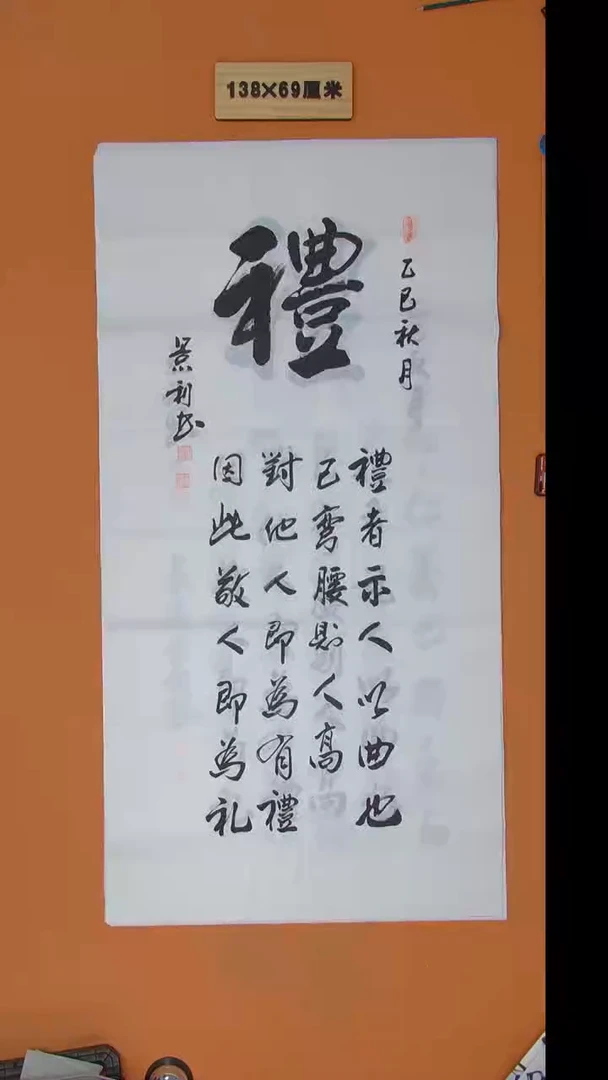 138×69厘米
禮
乙巳秋月
禮者示人以曲也
己彎腰則人高
對他人即為有禮
因此敬人即為礼
景利书